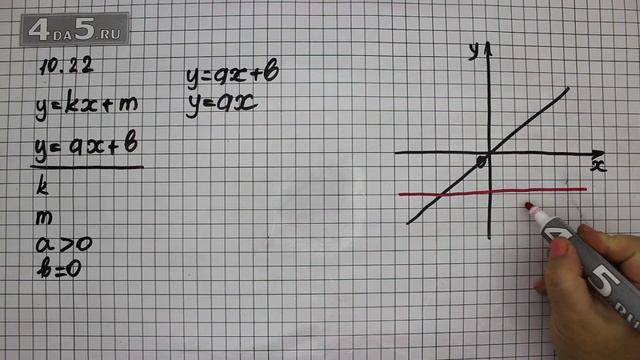 4DA5.RU
10.22
y=kx+m
y=ax+b
k
m
a>0
b=0
y=ax+b
y=ax
y
x
0
4
5